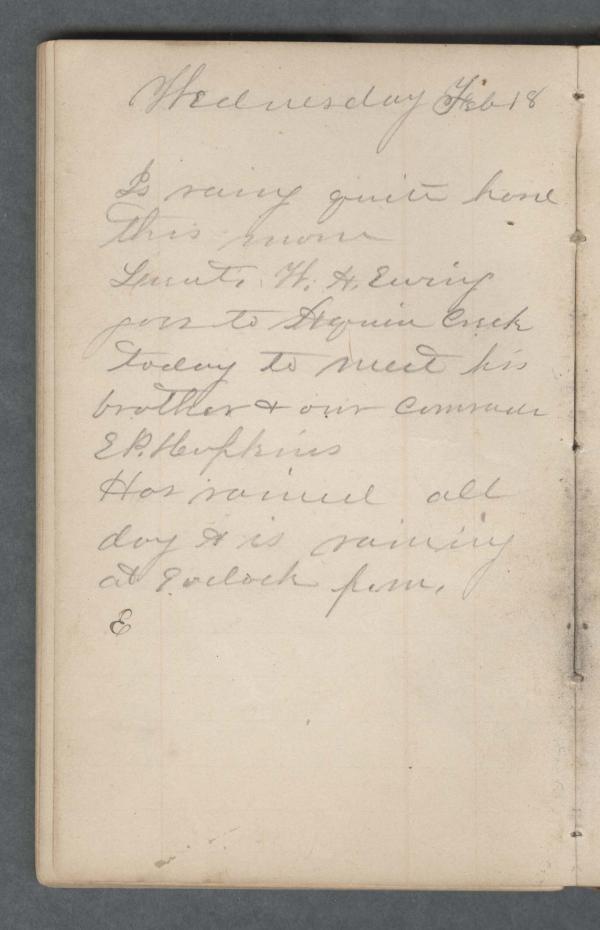 Wednesday Feb 18
Is rainy quite hard
this morn
Lieut. W. H. Ewing
goes to Aquia Creek
today to meet his
brother & our comrade
E P. Hopkins
Has rained all
day & is raining
at 8 oclock p.m.
E